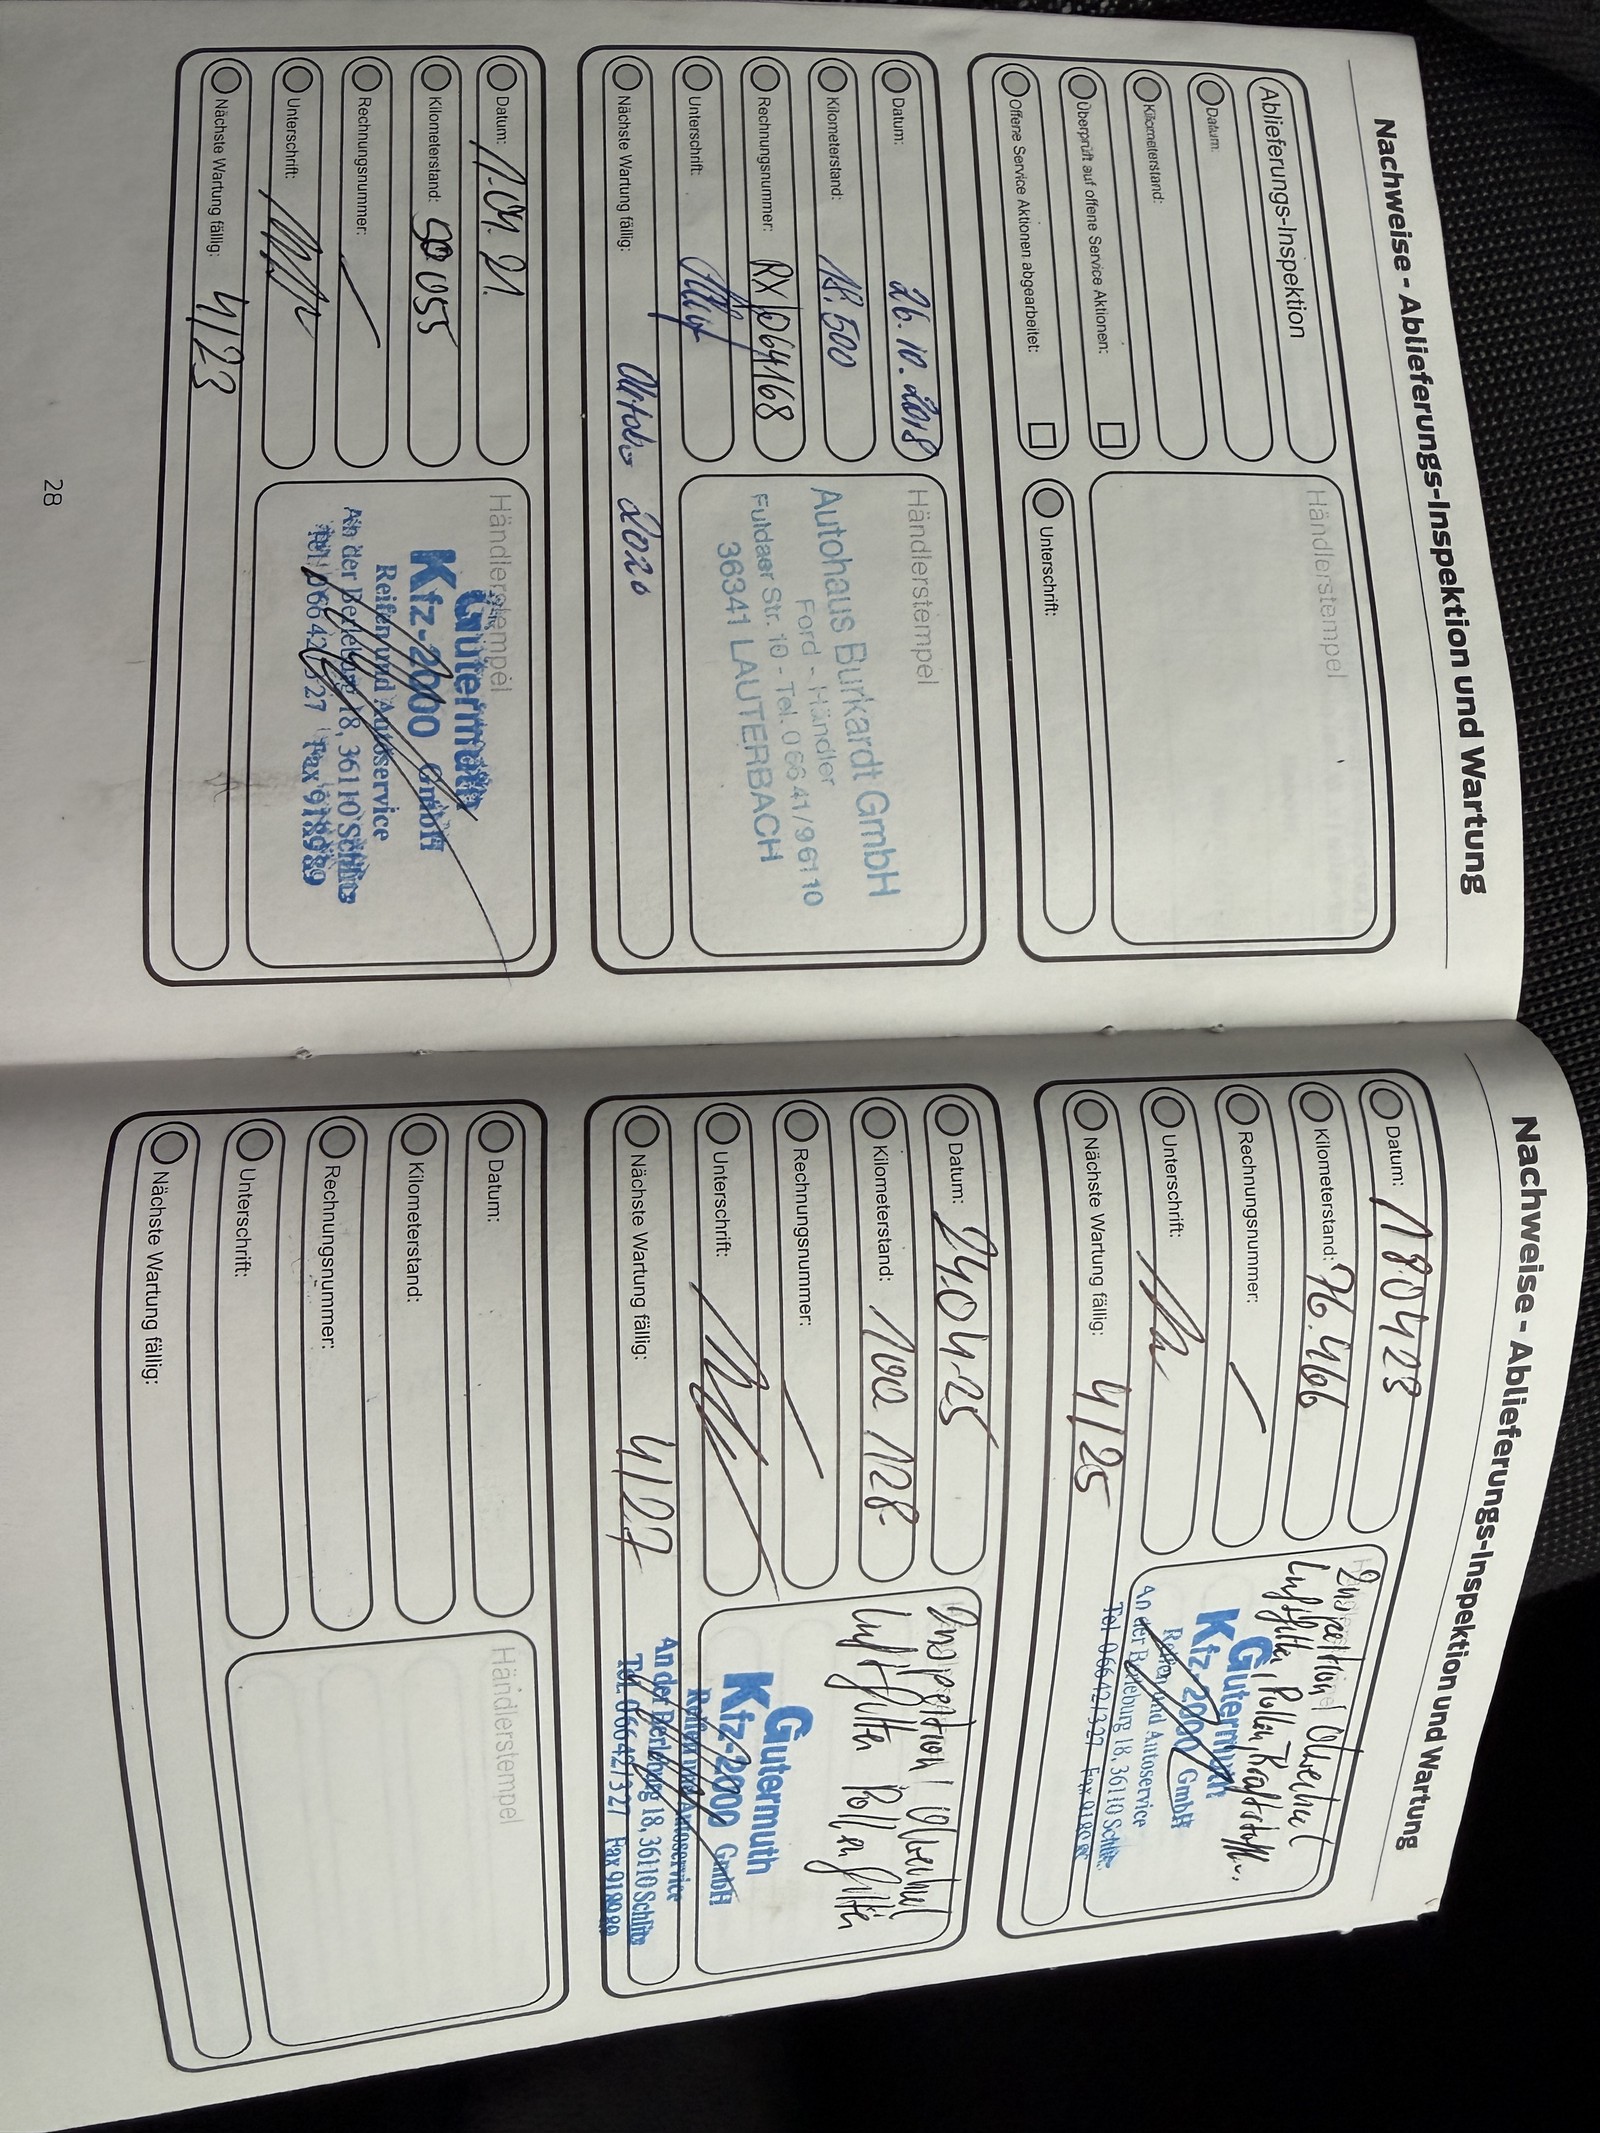 Nachweise - Ablieferungs-Inspektion und Wartung
Ablieferungs-Inspektion
Datum:
Kilometerstand:
Überprüft auf offene Service Aktionen:
Offene Service Aktionen abgearbeitet:
Händlerstempel
Unterschrift:
Datum: 26.10.2018
Kilometerstand: 18.500
Rechnungsnummer: RX/064168
Unterschrift:
Nächste Wartung fällig: Oktober 2020
Händlerstempel
Autohaus Burkardt GmbH
Ford - Händler
Fuldaer Str. 10 - Tel. 0 66 41/9 61 10
36341 LAUTERBACH
Datum: 1.04.21.
Kilometerstand: 50 055
Rechnungsnummer:
Unterschrift:
Nächste Wartung fällig: 4/23
Händlerstempel
Gutermuth
Kfz-2000 GmbH
Reifen und Autoservice
An der Berleburg 18, 36110 Schlitz
Tel. 0 66 42/3 27 Fax 91 89 89
28
Nachweise - Ablieferungs-Inspektion und Wartung
Datum: 18.04.23
Kilometerstand: 76.466
Rechnungsnummer:
Unterschrift:
Nächste Wartung fällig: 4/25
Inspektion/Ölwechsel
Luftfilter, Pollen, Kraftstofff.
Gutermuth
Kfz-2000 GmbH
Reifen und Autoservice
An der Berleburg 18, 36110 Schlitz
Tel. 0 66 42/3 27
Datum: 24.04.25
Kilometerstand: 100 128
Rechnungsnummer:
Unterschrift:
Nächste Wartung fällig: 4/27
Inspektion/Ölwechsel
Luftfilter Pollenfilter
Gutermuth
Kfz-2000 GmbH
Reifen und Autoservice
An der Berleburg 18, 36110 Schlitz
Tel. 0 66 42/3 27 Fax 91 89 89
Datum:
Kilometerstand:
Rechnungsnummer:
Unterschrift:
Nächste Wartung fällig:
Händlerstempel